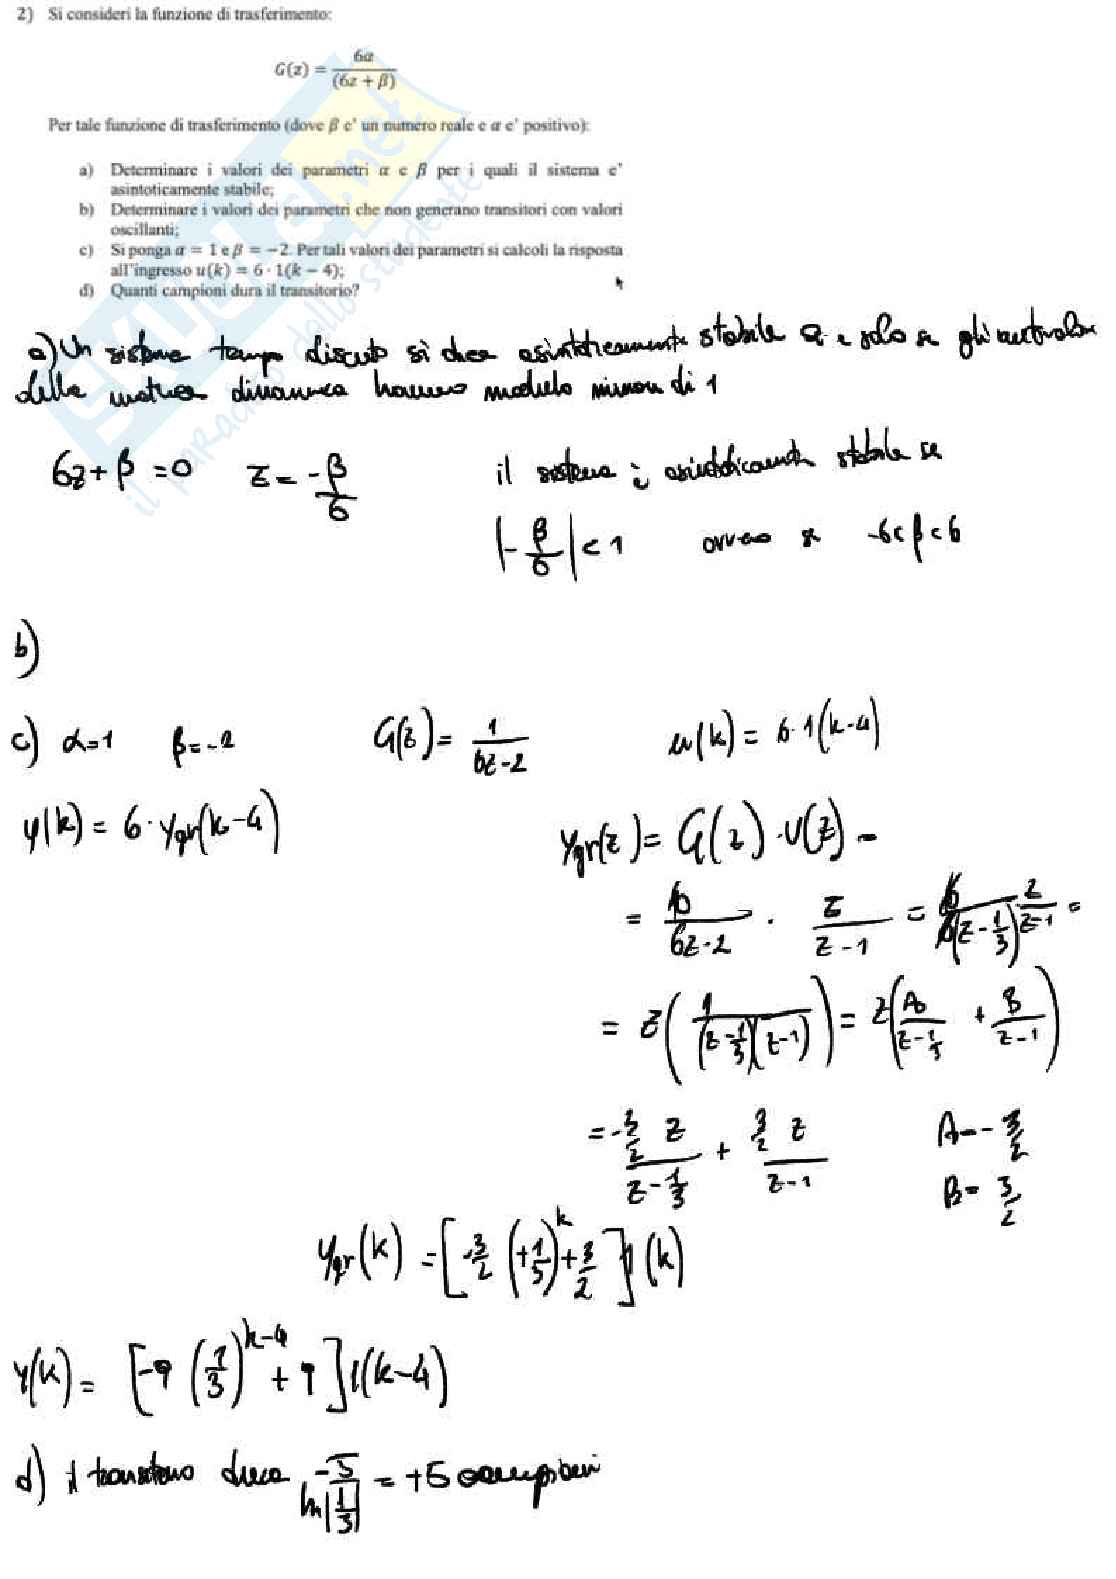 2) Si consideri la funzione di trasferimento:
G(z) = 6α / (6z + β)
Per tale funzione di trasferimento (dove β e' un numero reale e α e' positivo):
a) Determinare i valori dei parametri α e β per i quali il sistema e'
asintoticamente stabile;
b) Determinare i valori dei parametri che non generano transitori con valori
oscillanti;
c) Si ponga α = 1 e β = −2. Per tali valori dei parametri si calcoli la risposta
all'ingresso u(k) = 6 · 1(k − 4);
d) Quanti campioni dura il transitorio?
SKUOLA.net
il paradiso dello studente
a) Un sistema tempo discreto si dice asintoticamente stabile se e solo se gli autovalori
della matrice dinamica hanno modulo minore di 1
6z + β = 0 z = -β/6 il sistema è asintoticamente stabile se
|-β/6| < 1 ovvero se -6<β<6
b)
c) α=1 β=-2 G(z) = 1/(6z-2) u(k) = 6·1(k-4)
y(k) = 6·ygr(k-4) ygr(z) = G(z)·U(z) =
= 6/(6z-2) · z/(z-1) = 6/(6(z-1/3)) z/(z-1) =
= z(1/((z-1/3)(z-1))) = z(A/(z-1/3) + B/(z-1))
= -3/2 z/(z-1/3) + 3/2 z/(z-1) A=-3/2
B=3/2
ygr(k) = [-3/2 (+1/3)^k + 3/2] 1(k)
y(k) = [-9 (1/3)^(k-4) + 9] 1(k-4)
d) il transitorio dura -5/ln|1/3| = +5 campioni